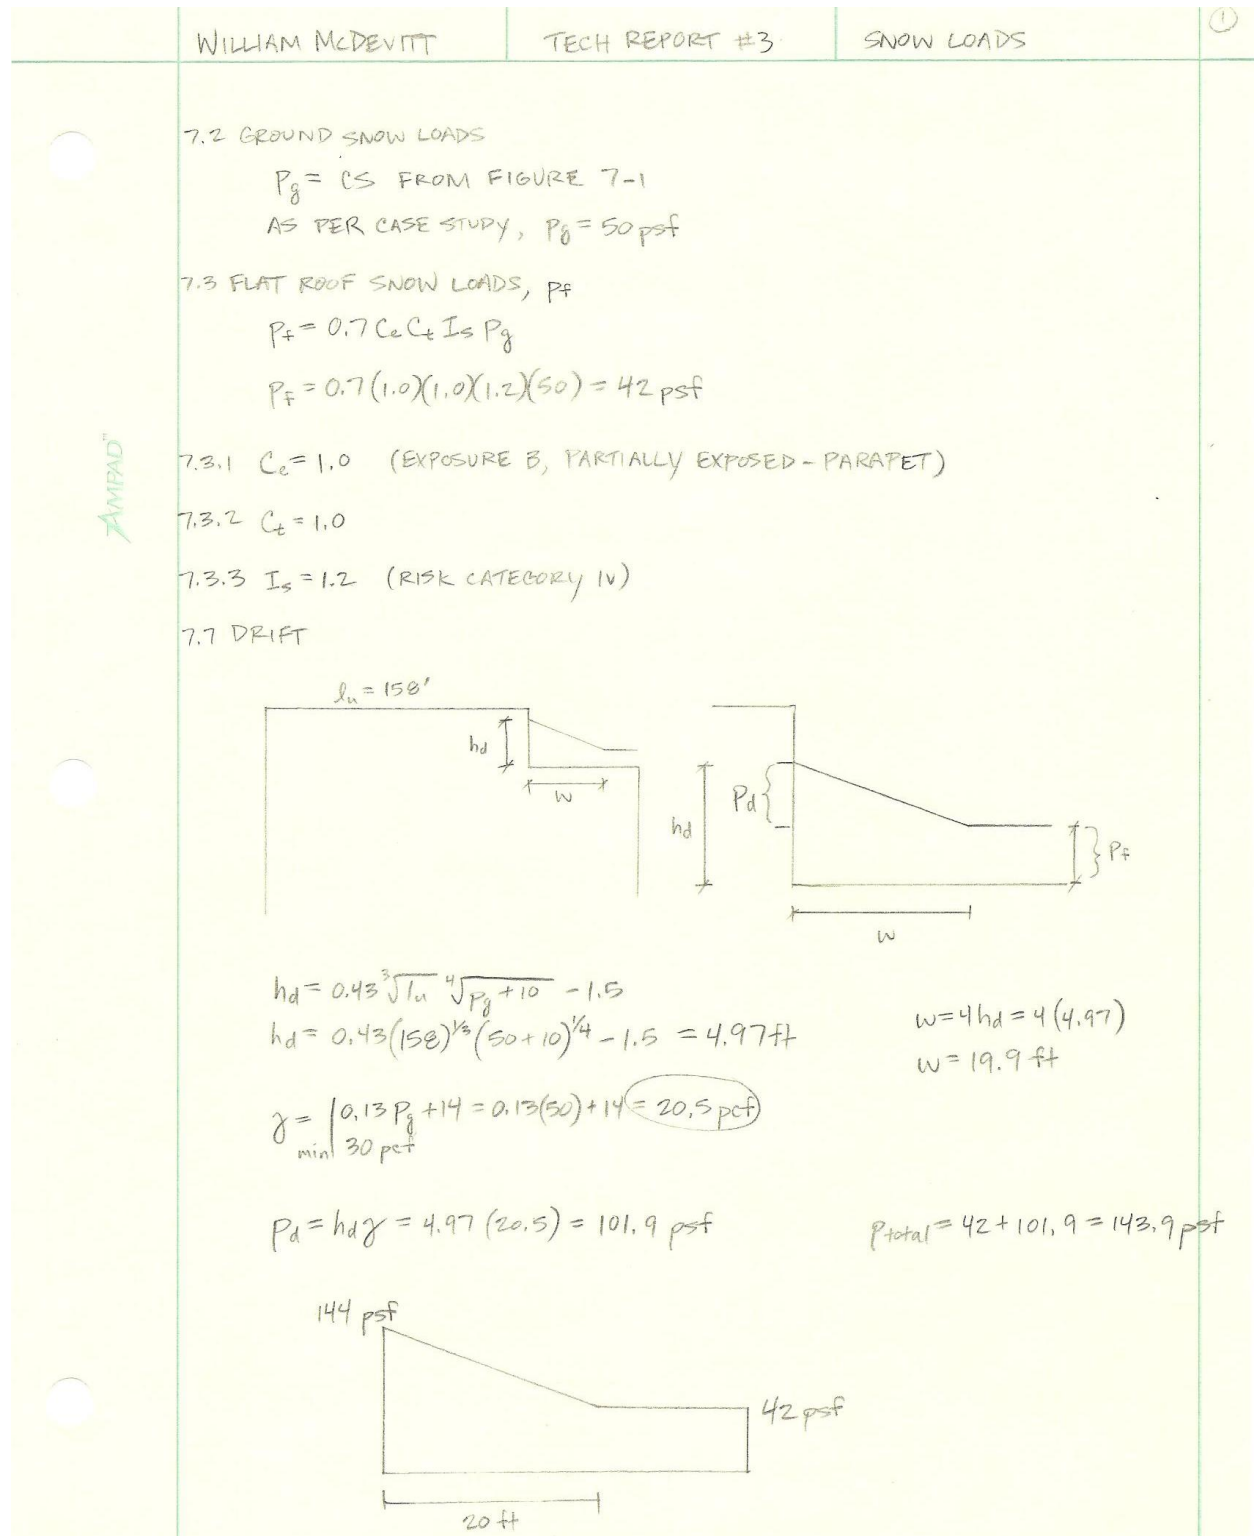 WILLIAM McDEVITT TECH REPORT #3 SNOW LOADS 1
7.2 GROUND SNOW LOADS
Pg = CS FROM FIGURE 7-1
AS PER CASE STUDY, Pg = 50 psf
7.3 FLAT ROOF SNOW LOADS, Pf
Pf = 0.7 Ce Ct Is Pg
Pf = 0.7 (1.0)(1.0)(1.2)(50) = 42 psf
AMPAD™
7.3.1 Ce = 1.0 (EXPOSURE B, PARTIALLY EXPOSED - PARAPET)
7.3.2 Ct = 1.0
7.3.3 Is = 1.2 (RISK CATEGORY IV)
7.7 DRIFT
lu = 158'
hd
w
hd
Pd {
} Pf
w
hd = 0.43 ∛lu ∜Pg + 10 - 1.5
hd = 0.43 (158)^1/3 (50 + 10)^1/4 - 1.5 = 4.97 ft
w = 4hd = 4 (4.97)
w = 19.9 ft
γ = | 0.13 Pg + 14 = 0.13(50) + 14 = 20.5 pcf
min | 30 pcf
Pd = hd γ = 4.97 (20.5) = 101.9 psf
Ptotal = 42 + 101.9 = 143.9 psf
144 psf
42 psf
20 ft